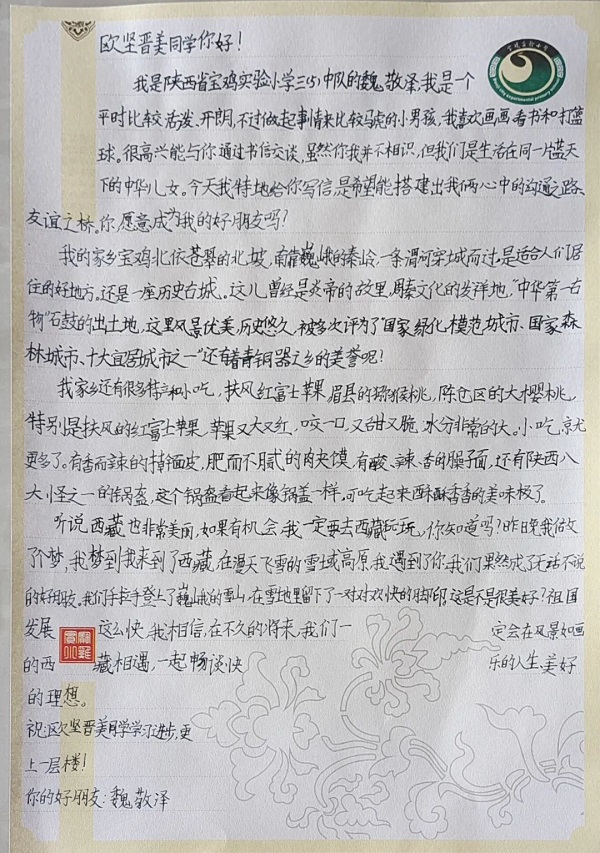 欧坚晋美同学你好！
我是陕西省宝鸡实验小学三(5)中队的魏敬泽,我是一个
平时比较活泼、开朗,不过做起事情来比较马虎的小男孩,我喜欢画画看书和打篮
球。很高兴能与你通过书信交谈,虽然你我并不相识,但我们是生活在同一片蓝天
下的中华儿女。今天我特地给你写信,是希望能搭建出我俩心中的沟通之路、
友谊之桥。你愿意成为我的好朋友吗？
我的家乡宝鸡北依苍翠的北坡,南靠巍峨的秦岭,一条渭河穿城而过,是适合人们居
住的好地方。还是一座历史古城。这儿曾经是炎帝的故里,周秦文化的发祥地,“中华第一古
物”石鼓的出土地,这里风景优美,历史悠久,被多次评为了“国家绿化模范城市、国家森
林城市、十大宜居城市之一”还有着青铜器之乡的美誉呢！
我家乡还有很多特产和小吃,扶风红富士苹果,眉县的猕猴桃,陈仓区的大樱桃,
特别是扶风的红富士苹果,苹果又大又红,咬一口,又甜又脆,水分非常的大。小吃,就
更多了。有香而辣的擀面皮,肥而不腻的肉夹馍,有酸、辣、香的臊子面,还有陕西八
大怪之一的锅盔,这个锅盔看起来像锅盖一样。可吃起来酥酥香香的美味极了。
听说西藏也非常美丽,如果有机会,我一定要去西藏玩玩,你知道吗？昨日晚我做
了个梦,我梦到我来到了西藏,在漫天飞雪的雪域高原,我遇到了你,我们果然成了无话不说
的好朋友。我们手拉手登上了巍峨的雪山,在雪地里留下了一对对欢快的脚印,这是不是很美好？祖国
发展 这么快,我相信,在不久的将来,我们一 定会在风景如画
的西 藏相遇,一起畅谈快 乐的人生,美好
的理想。
祝:欧坚晋美同学学习进步,更
上一层楼！
你的好朋友:魏敬泽